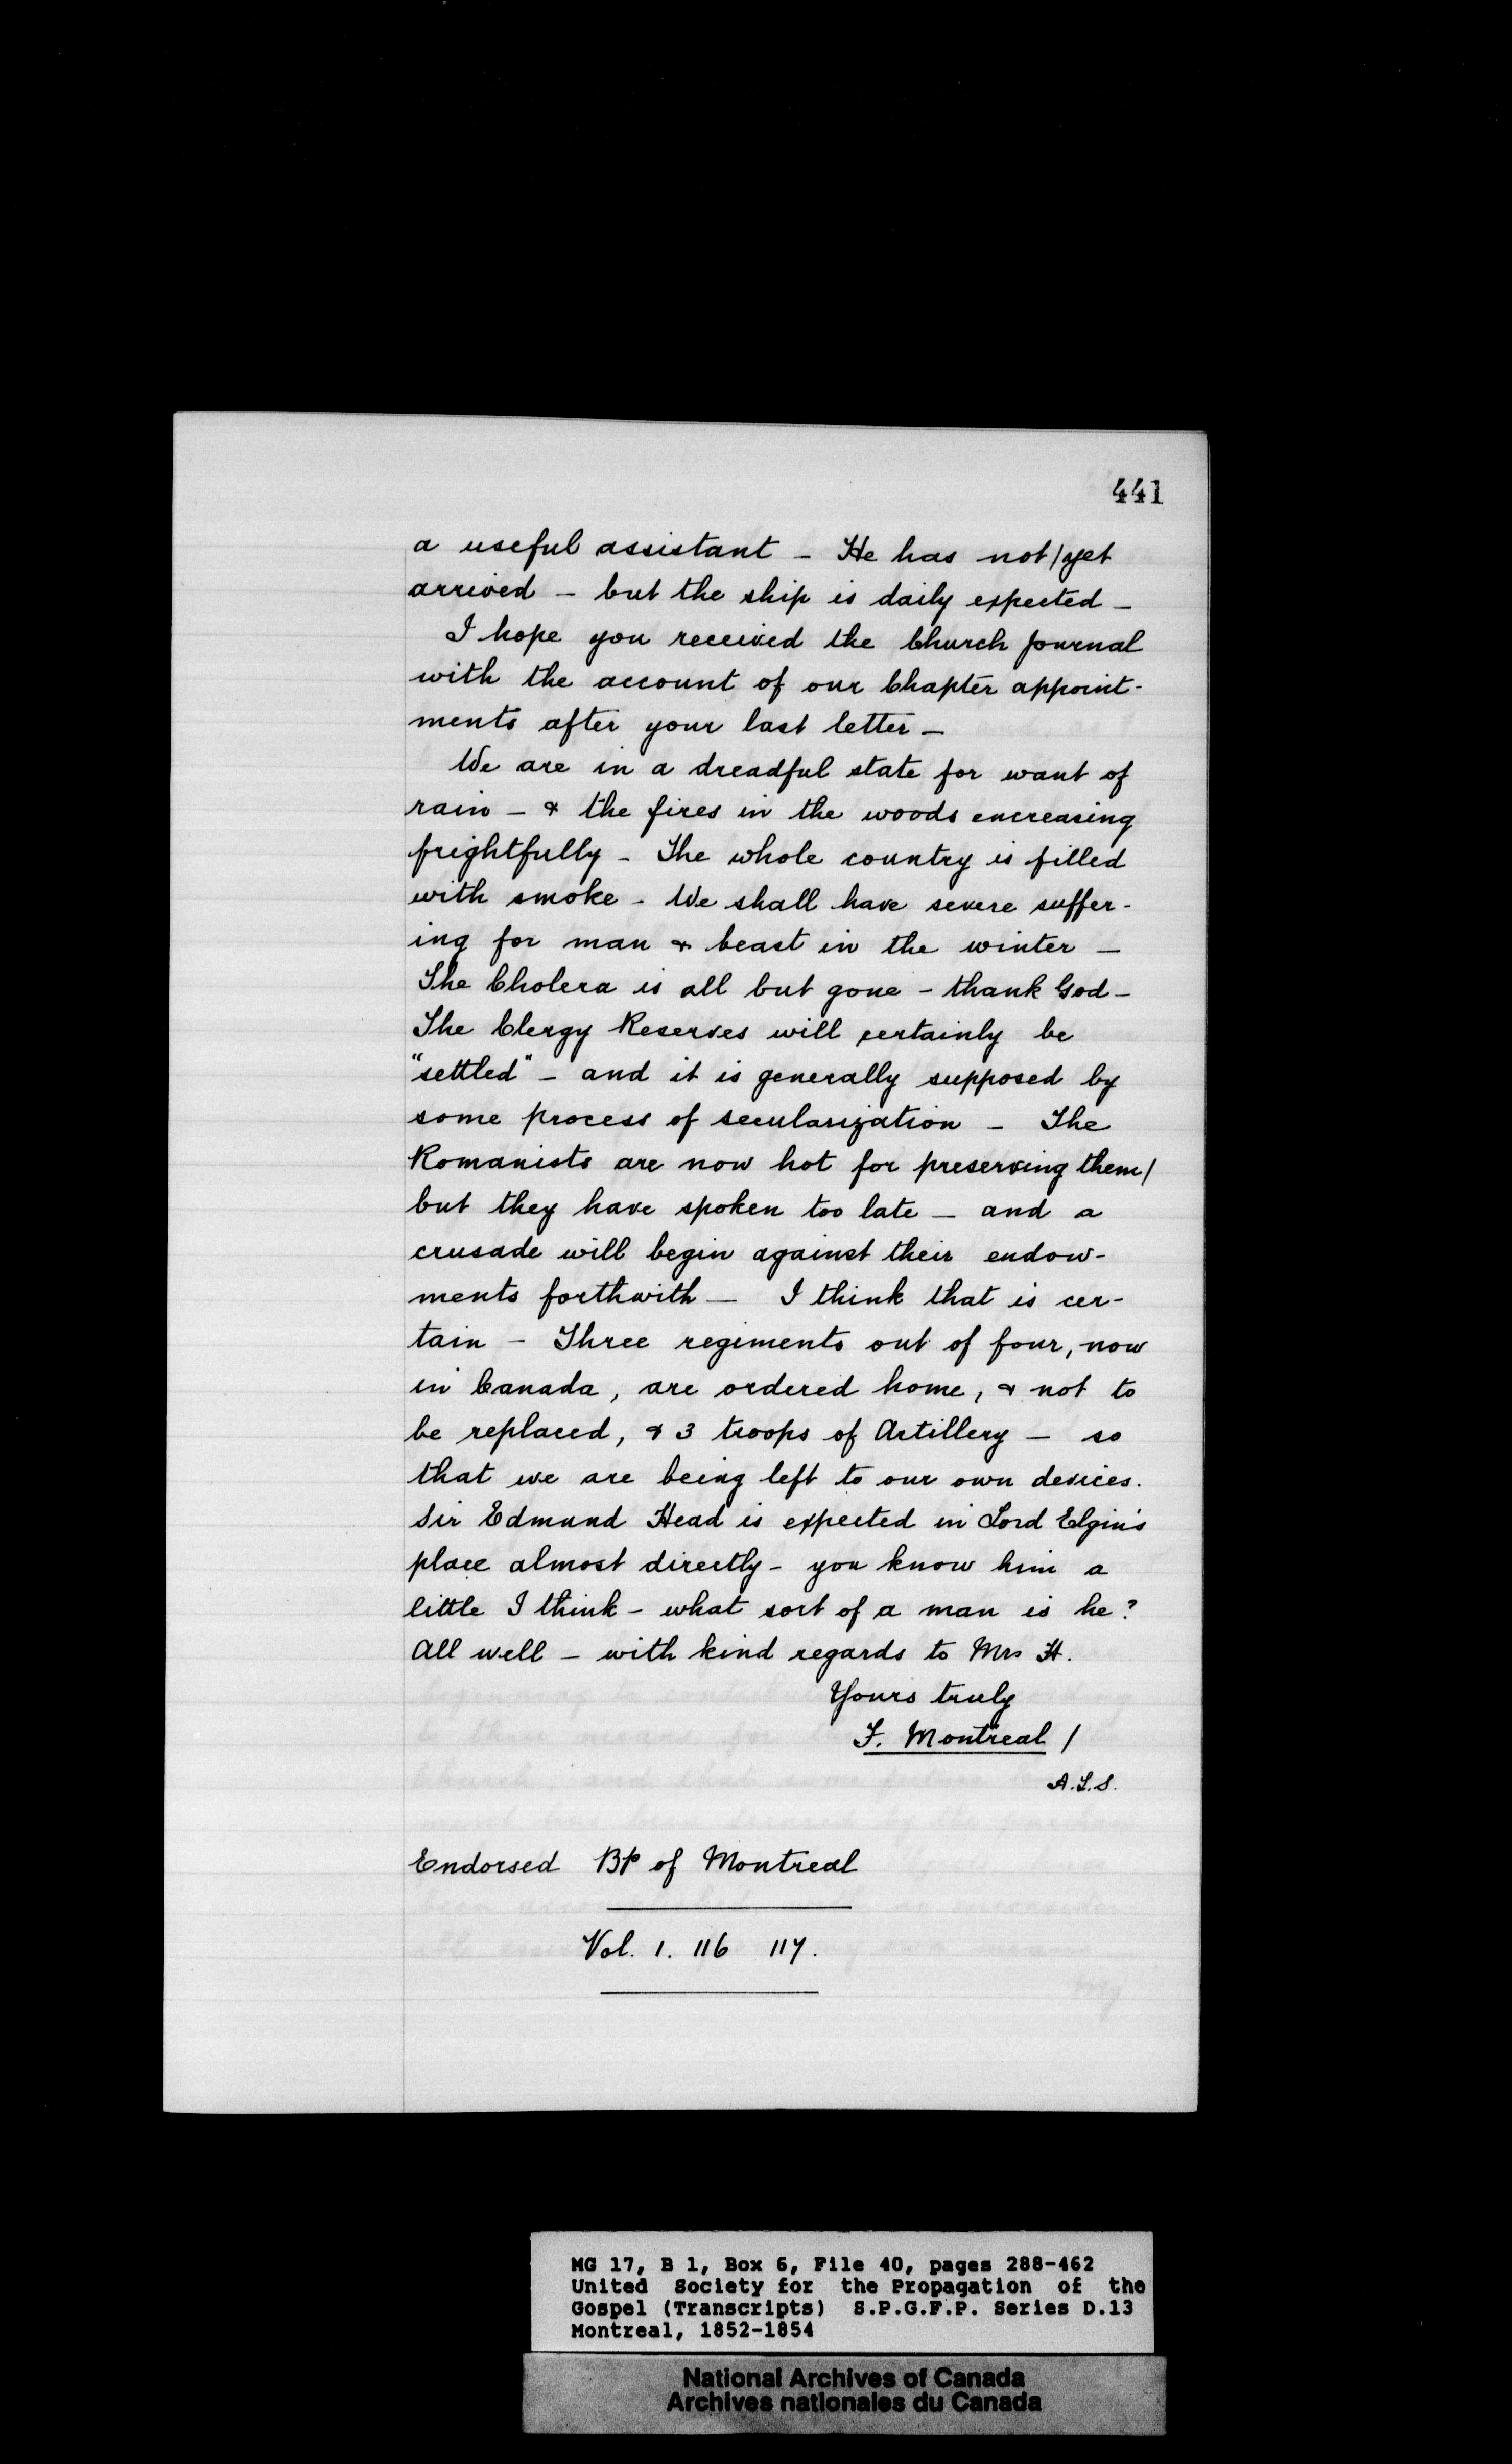 441
a useful assistant - He has not/yet
arrived - but the ship is daily expected -
I hope you received the Church Journal
with the account of our Chapter appoint-
ments after your last letter -
We are in a dreadful state for want of
rain - & the fires in the woods encreasing
frightfully - The whole country is filled
with smoke - We shall have severe suffer-
ing for man & beast in the winter -
The Cholera is all but gone - thank God -
The Clergy Reserves will certainly be
"settled" - and it is generally supposed by
some process of secularization - The
Romanists are now hot for preserving them/
but they have spoken too late - and a
crusade will begin against their endow-
ments forthwith - I think that is cer-
tain - Three regiments out of four, now
in Canada, are ordered home, & not to
be replaced, & 3 troops of Artillery - so
that we are being left to our own devices.
Sir Edmund Head is expected in Lord Elgin's
place almost directly - you know him a
little I think - what sort of a man is he?
All well - with kind regards to Mrs H.
Yours truly
F. Montreal /
A.L.S.
Endorsed Bp of Montreal
Vol. 1. 116 117.
MG 17, B 1, Box 6, File 40, pages 288-462
United Society for the Propagation of the
Gospel (Transcripts) S.P.G.F.P. Series D.13
Montreal, 1852-1854
National Archives of Canada
Archives nationales du Canada